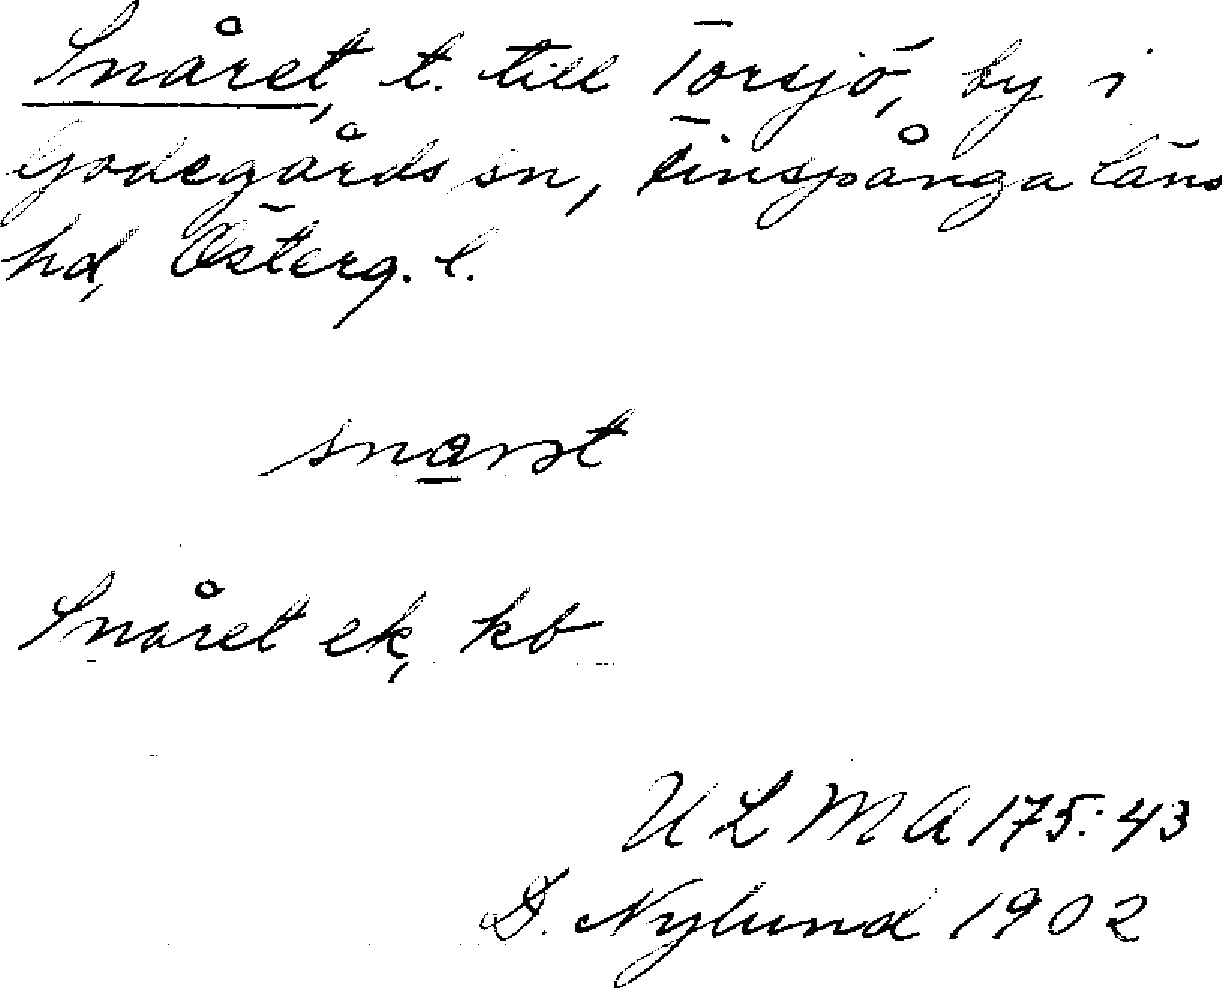 Snåret, t. till Torsjö, by i
Godegårds sn, Finspånga läns
hd, Österg. l.
Snåret ek, kb
ULMA 175:43
D. Nylund 1902